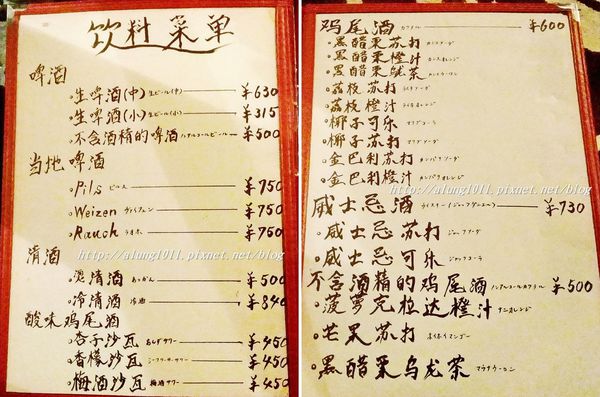 饮料菜单
啤酒
生啤酒(中) 生ビール(中) ¥630
生啤酒(小) 生ビール(小) ¥315
不含酒精的啤酒 ノンアルコールビール ¥500
当地啤酒
Pils ピルス ¥750
Weizen ヴァイツェン ¥750
Rauch ラオホ ¥750
http://alung1011.pixnet.net/blog
清酒
烫清酒 あつかん ¥500
冷清酒 冷酒 ¥840
酸味鸡尾酒
杏子沙瓦 あんずサワー ¥450
香檬沙瓦 ¥450
梅酒沙瓦 梅酒サワー ¥450
鸡尾酒 カクテル ¥600
黑醋栗苏打 カシスソーダ
黑醋栗橙汁 カシスオレンジ
黑醋栗乌茏茶 カシスウーロン
荔枝苏打 ライチソーダ
荔枝橙汁 ライチオレンジ
椰子可乐 マリブコーラ
椰子苏打 マリブソーダ
金巴利苏打 カンパリソーダ
金巴利橙汁 カンパリオレンジ
http://alung1011.pixnet.net/blog
威士忌酒 ¥730
威士忌苏打
威士忌可乐
不含酒精的鸡尾酒 ノンアルコールカクテル ¥500
菠萝克拉达橙汁
芒果苏打
黑醋栗乌龙茶